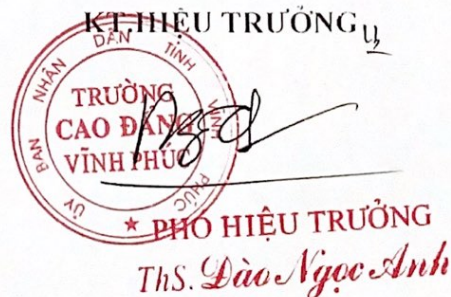 KT.HIỆU TRƯỞNG
ỦY BAN NHÂN DÂN TỈNH VĨNH PHÚC
TRƯỜNG
CAO ĐẲNG
VĨNH PHÚC
PHÓ HIỆU TRƯỞNG
ThS. Đào Ngọc Anh